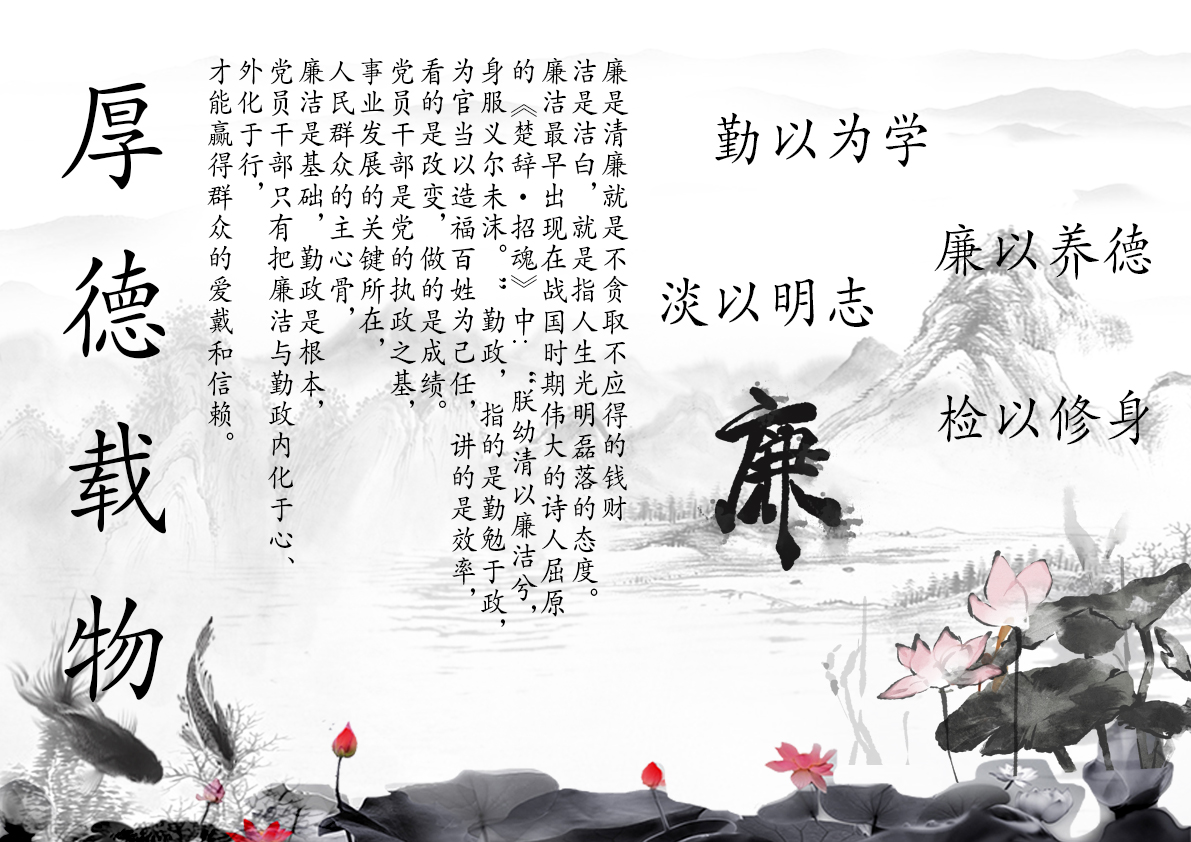 勤以为学
廉以养德
淡以明志
检以修身
廉
廉是清廉就是不贪取不应得的钱财
洁是洁白，就是指人生光明磊落的态度。
廉洁最早出现在战国时期伟大的诗人屈原
的《楚辞·招魂》中：“朕幼清以廉洁兮，
身服义尔未沫。”勤政，指的是勤勉于政，
为官当以造福百姓为己任，讲的是效率，
看的是改变，做的是成绩。
党员干部是党的执政之基，
事业发展的关键所在，
人民群众的主心骨，
廉洁是基础，勤政是根本，
党员干部只有把廉洁与勤政内化于心、
外化于行，
才能赢得群众的爱戴和信赖。
厚德载物